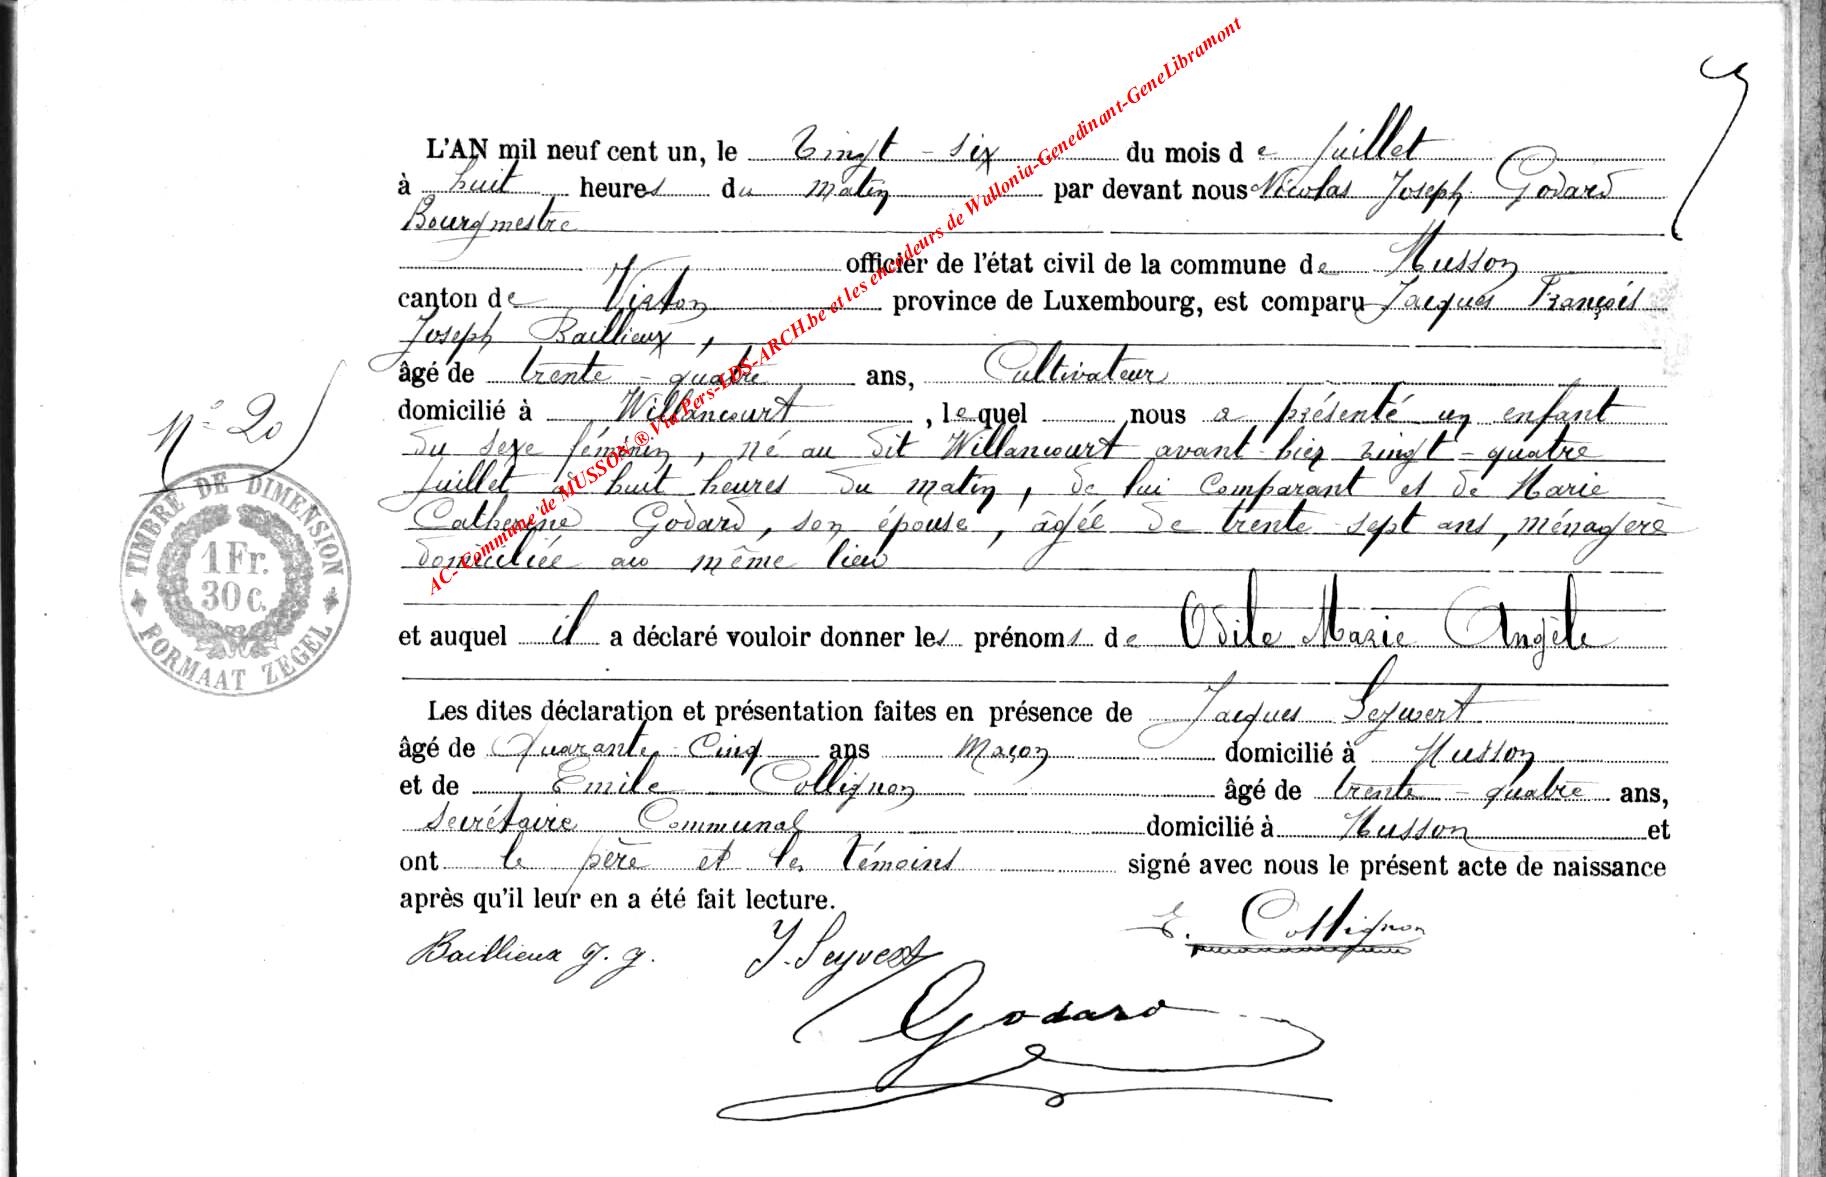 L'AN mil neuf cent un, le vingt-six du mois de juillet
à huit heures du matin par devant nous Nicolas Joseph Godard
Bourgmestre
officier de l'état civil de la commune de Musson
canton de Virton province de Luxembourg, est comparu Jacques François
Joseph Baillieux,
âgé de trente-quatre ans, Cultivateur
domicilié à Willancourt, lequel nous a présenté un enfant
du sexe féminin, né au dit Willancourt avant-hier vingt-quatre
juillet à huit heures du matin, de lui comparant et de Marie
Catherine Godard, son épouse, âgée de trente sept ans, ménagère
domiciliée au même lieu
et auquel il a déclaré vouloir donner les prénoms de Odile Marie Angèle
Les dites déclaration et présentation faites en présence de Jacques Seywert
âgé de Quarante-Cinq ans Maçon domicilié à Musson
et de Emile Collignon âgé de trente-quatre ans,
Secrétaire Communal domicilié à Musson et
ont le père et les témoins signé avec nous le présent acte de naissance
après qu'il leur en a été fait lecture.
Baillieux J. J. J. Seyvert E. Collignon
Godard
N° 20
TIMBRE DE DIMENSION
1 Fr.
30 C.
FORMAAT ZEGEL
AC-Commune de MUSSON ® Via Pers-LDS-ARCH.be et les encodeurs de Wallonia-Genedinant-GeneLibramont